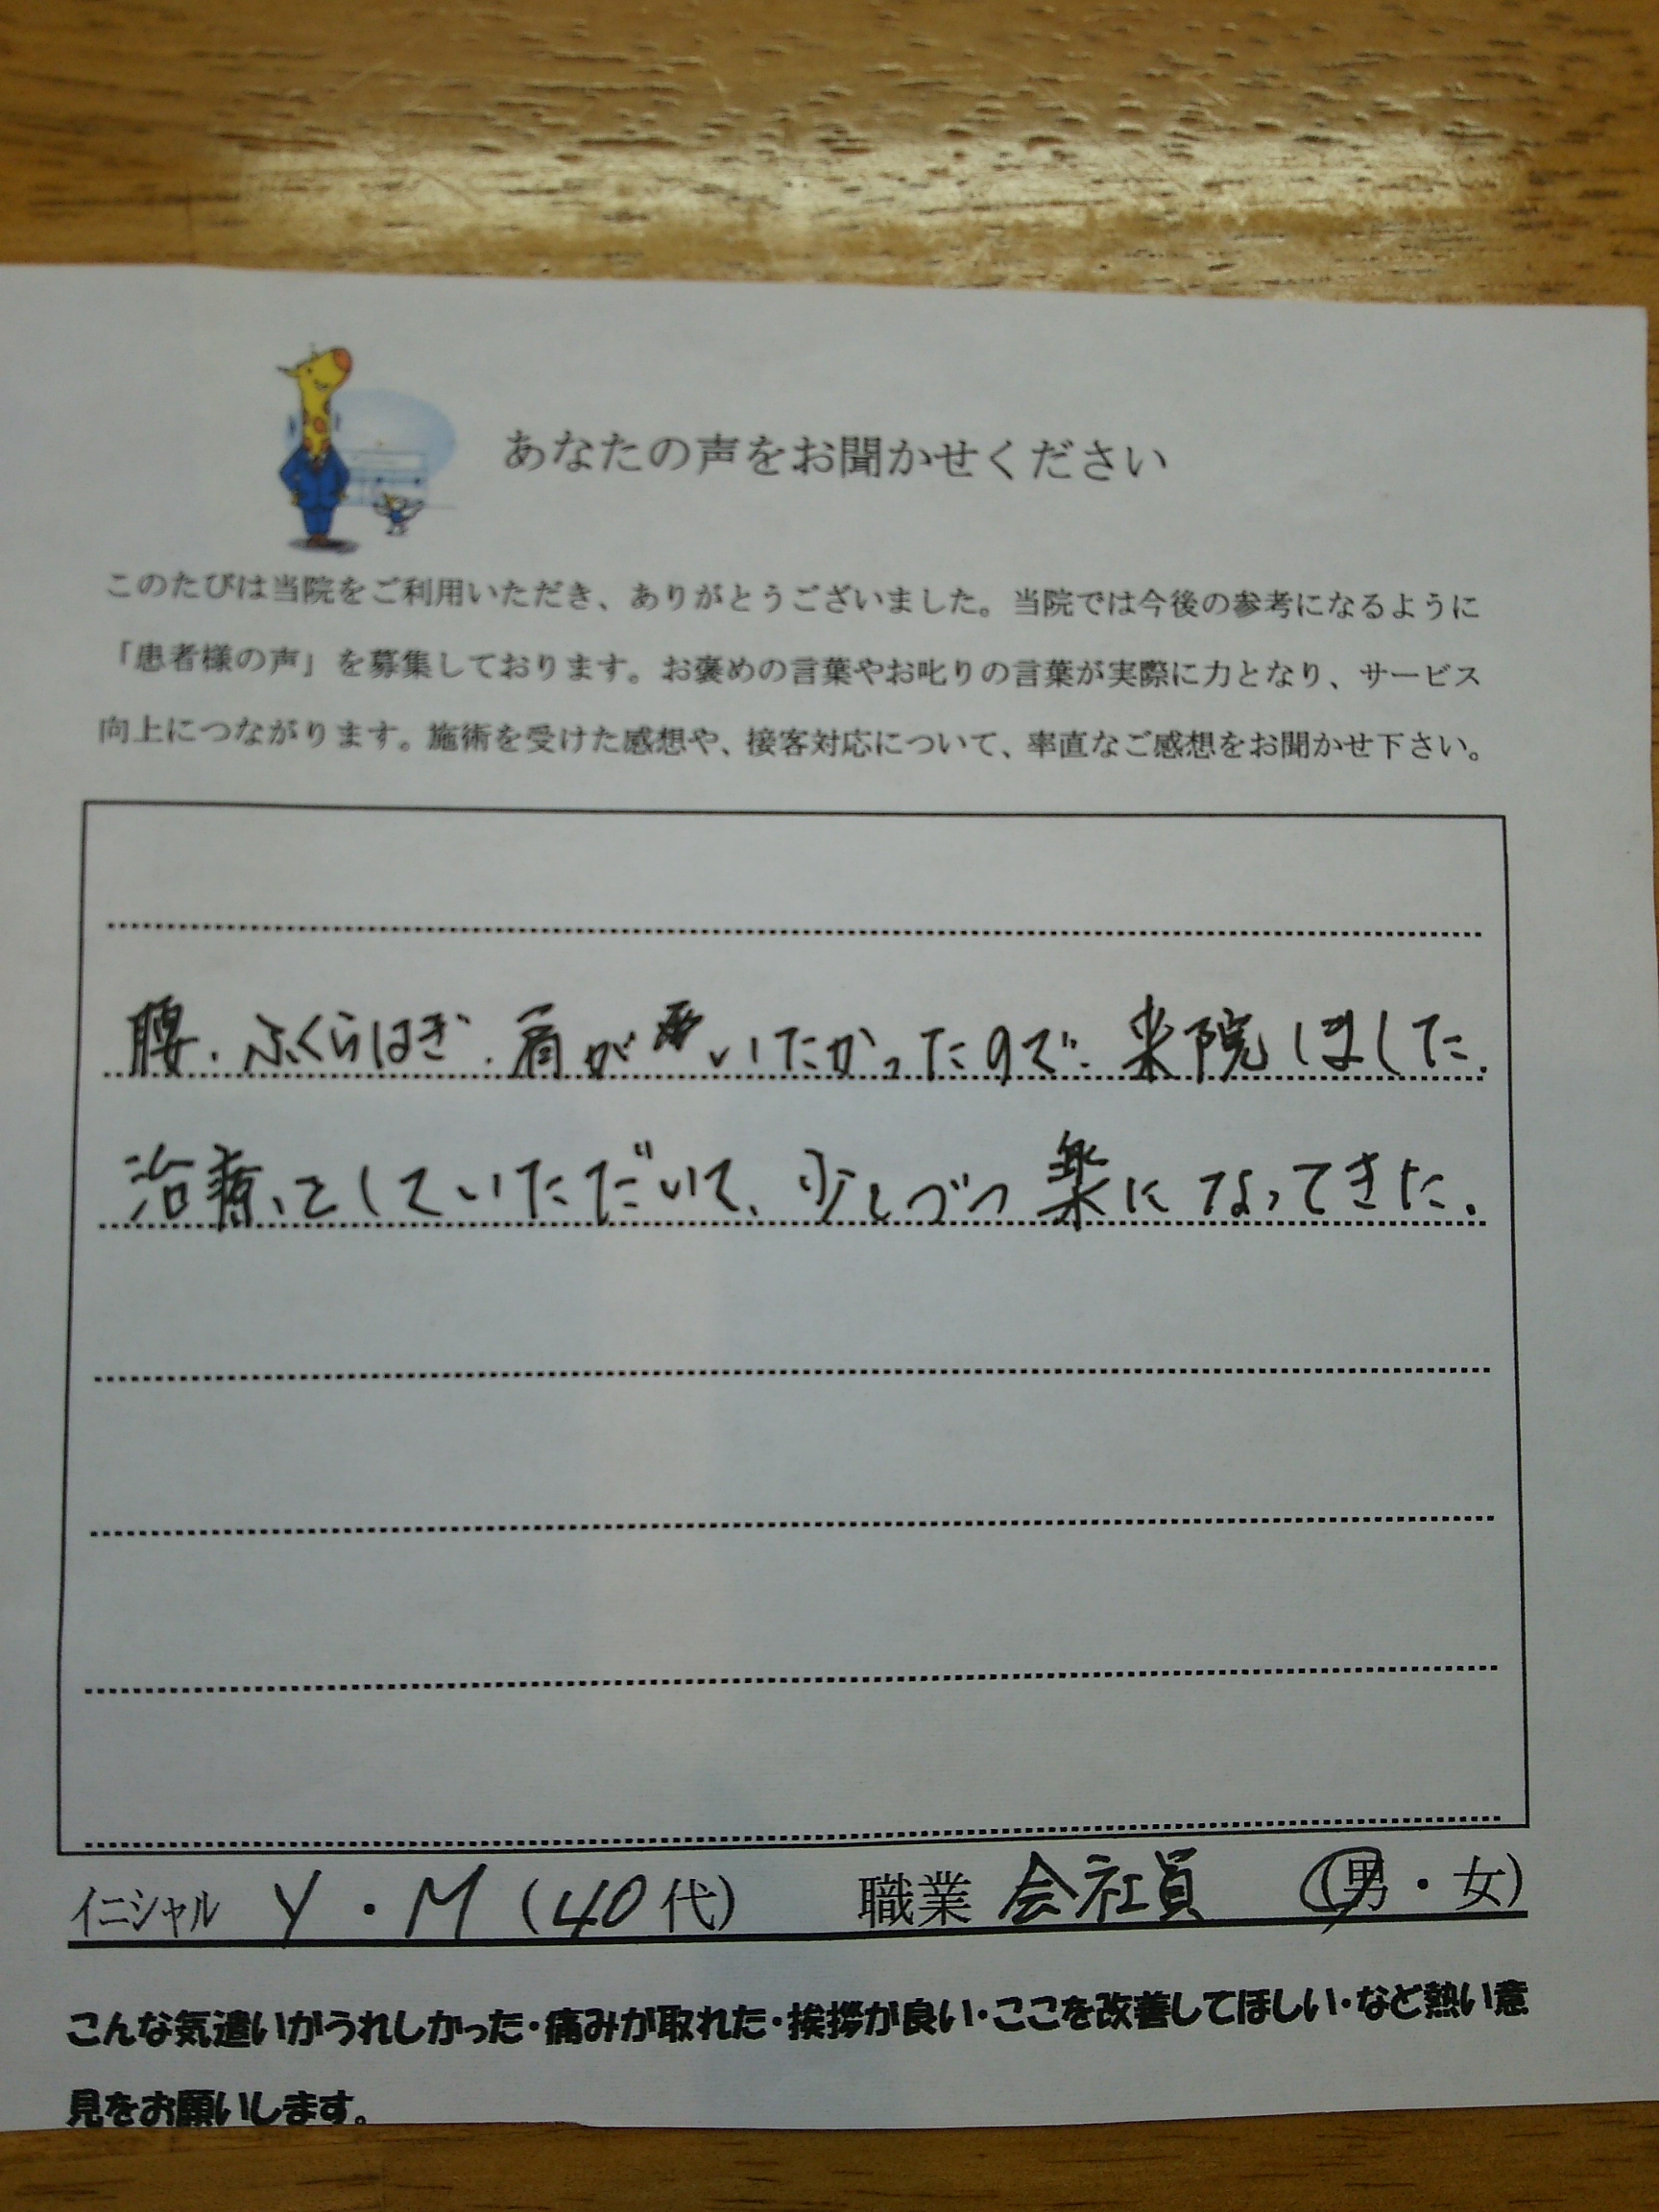 あなたの声をお聞かせください
このたびは当院をご利用いただき、ありがとうございました。当院では今後の参考になるように
「患者様の声」を募集しております。お褒めの言葉やお叱りの言葉が実際に力となり、サービス
向上につながります。施術を受けた感想や、接客対応について、率直なご感想をお聞かせ下さい。
腰、ふくらはぎ、肩がいたかったので、来院しました。
治療をしていただいて、少しづつ楽になってきた。
イニシャル Y・M(40代) 職業 会社員 (男・女)
こんな気遣いがうれしかった・痛みが取れた・挨拶が良い・ここを改善してほしい・など熱い意
見をお願いします。